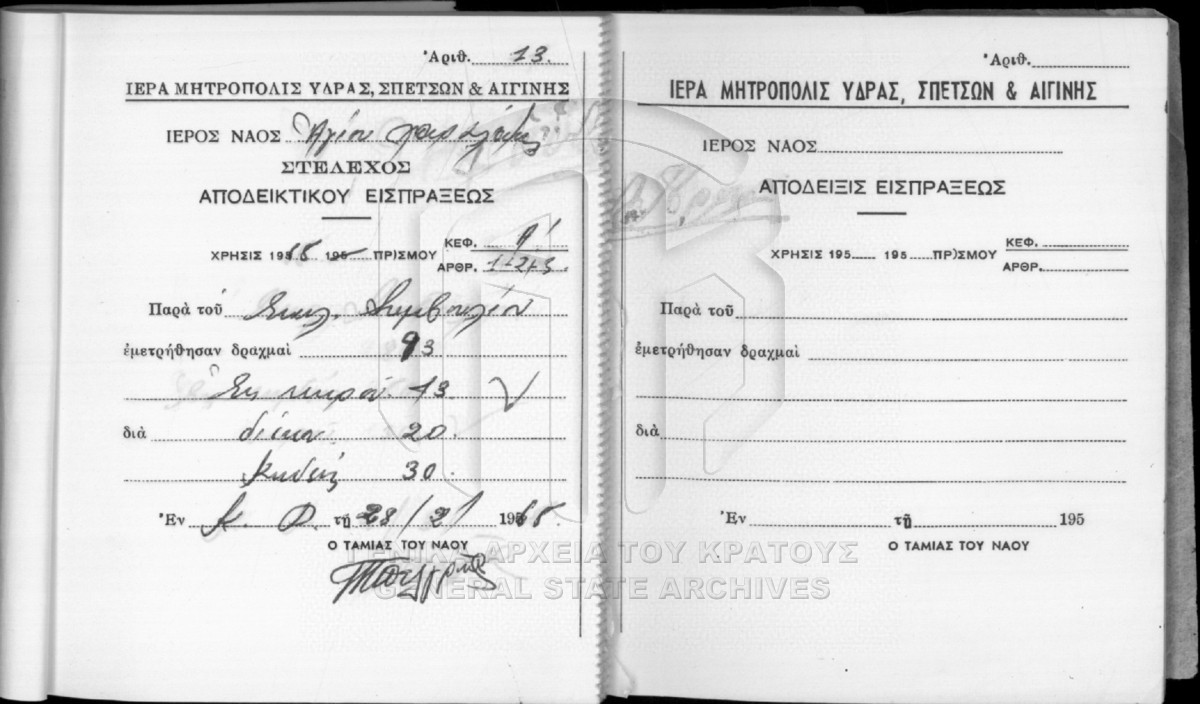 Ἀριθ. 13.
ΙΕΡΑ ΜΗΤΡΟΠΟΛΙΣ ΥΔΡΑΣ, ΣΠΕΤΣΩΝ & ΑΙΓΙΝΗΣ
ΙΕΡΟΣ ΝΑΟΣ Ἁγίου
ΣΤΕΛΕΧΟΣ
ΑΠΟΔΕΙΚΤΙΚΟΥ ΕΙΣΠΡΑΞΕΩΣ
ΚΕΦ.
ΧΡΗΣΙΣ 1965 195 ΠΡ)ΣΜΟΥ
ΑΡΘΡ. 1-2-3.
Παρὰ τοῦ Συμβουλίου
ἐμετρήθησαν δραχμαὶ 93
13
διὰ δίσκου 20.
Κηδείες 30.
Ἐν Κ. τῇ 28/2/ 1965.
Ο ΤΑΜΙΑΣ ΤΟΥ ΝΑΟΥ
Ἀριθ.
ΙΕΡΑ ΜΗΤΡΟΠΟΛΙΣ ΥΔΡΑΣ, ΣΠΕΤΣΩΝ & ΑΙΓΙΝΗΣ
ΙΕΡΟΣ ΝΑΟΣ
ΑΠΟΔΕΙΞΙΣ ΕΙΣΠΡΑΞΕΩΣ
ΚΕΦ.
ΧΡΗΣΙΣ 195 195 ΠΡ)ΣΜΟΥ
ΑΡΘΡ.
Παρὰ τοῦ
ἐμετρήθησαν δραχμαὶ
διὰ
Ἐν τῇ 195
Ο ΤΑΜΙΑΣ ΤΟΥ ΝΑΟΥ
ΓΕΝΙΚΑ ΑΡΧΕΙΑ ΤΟΥ ΚΡΑΤΟΥΣ
GENERAL STATE ARCHIVES